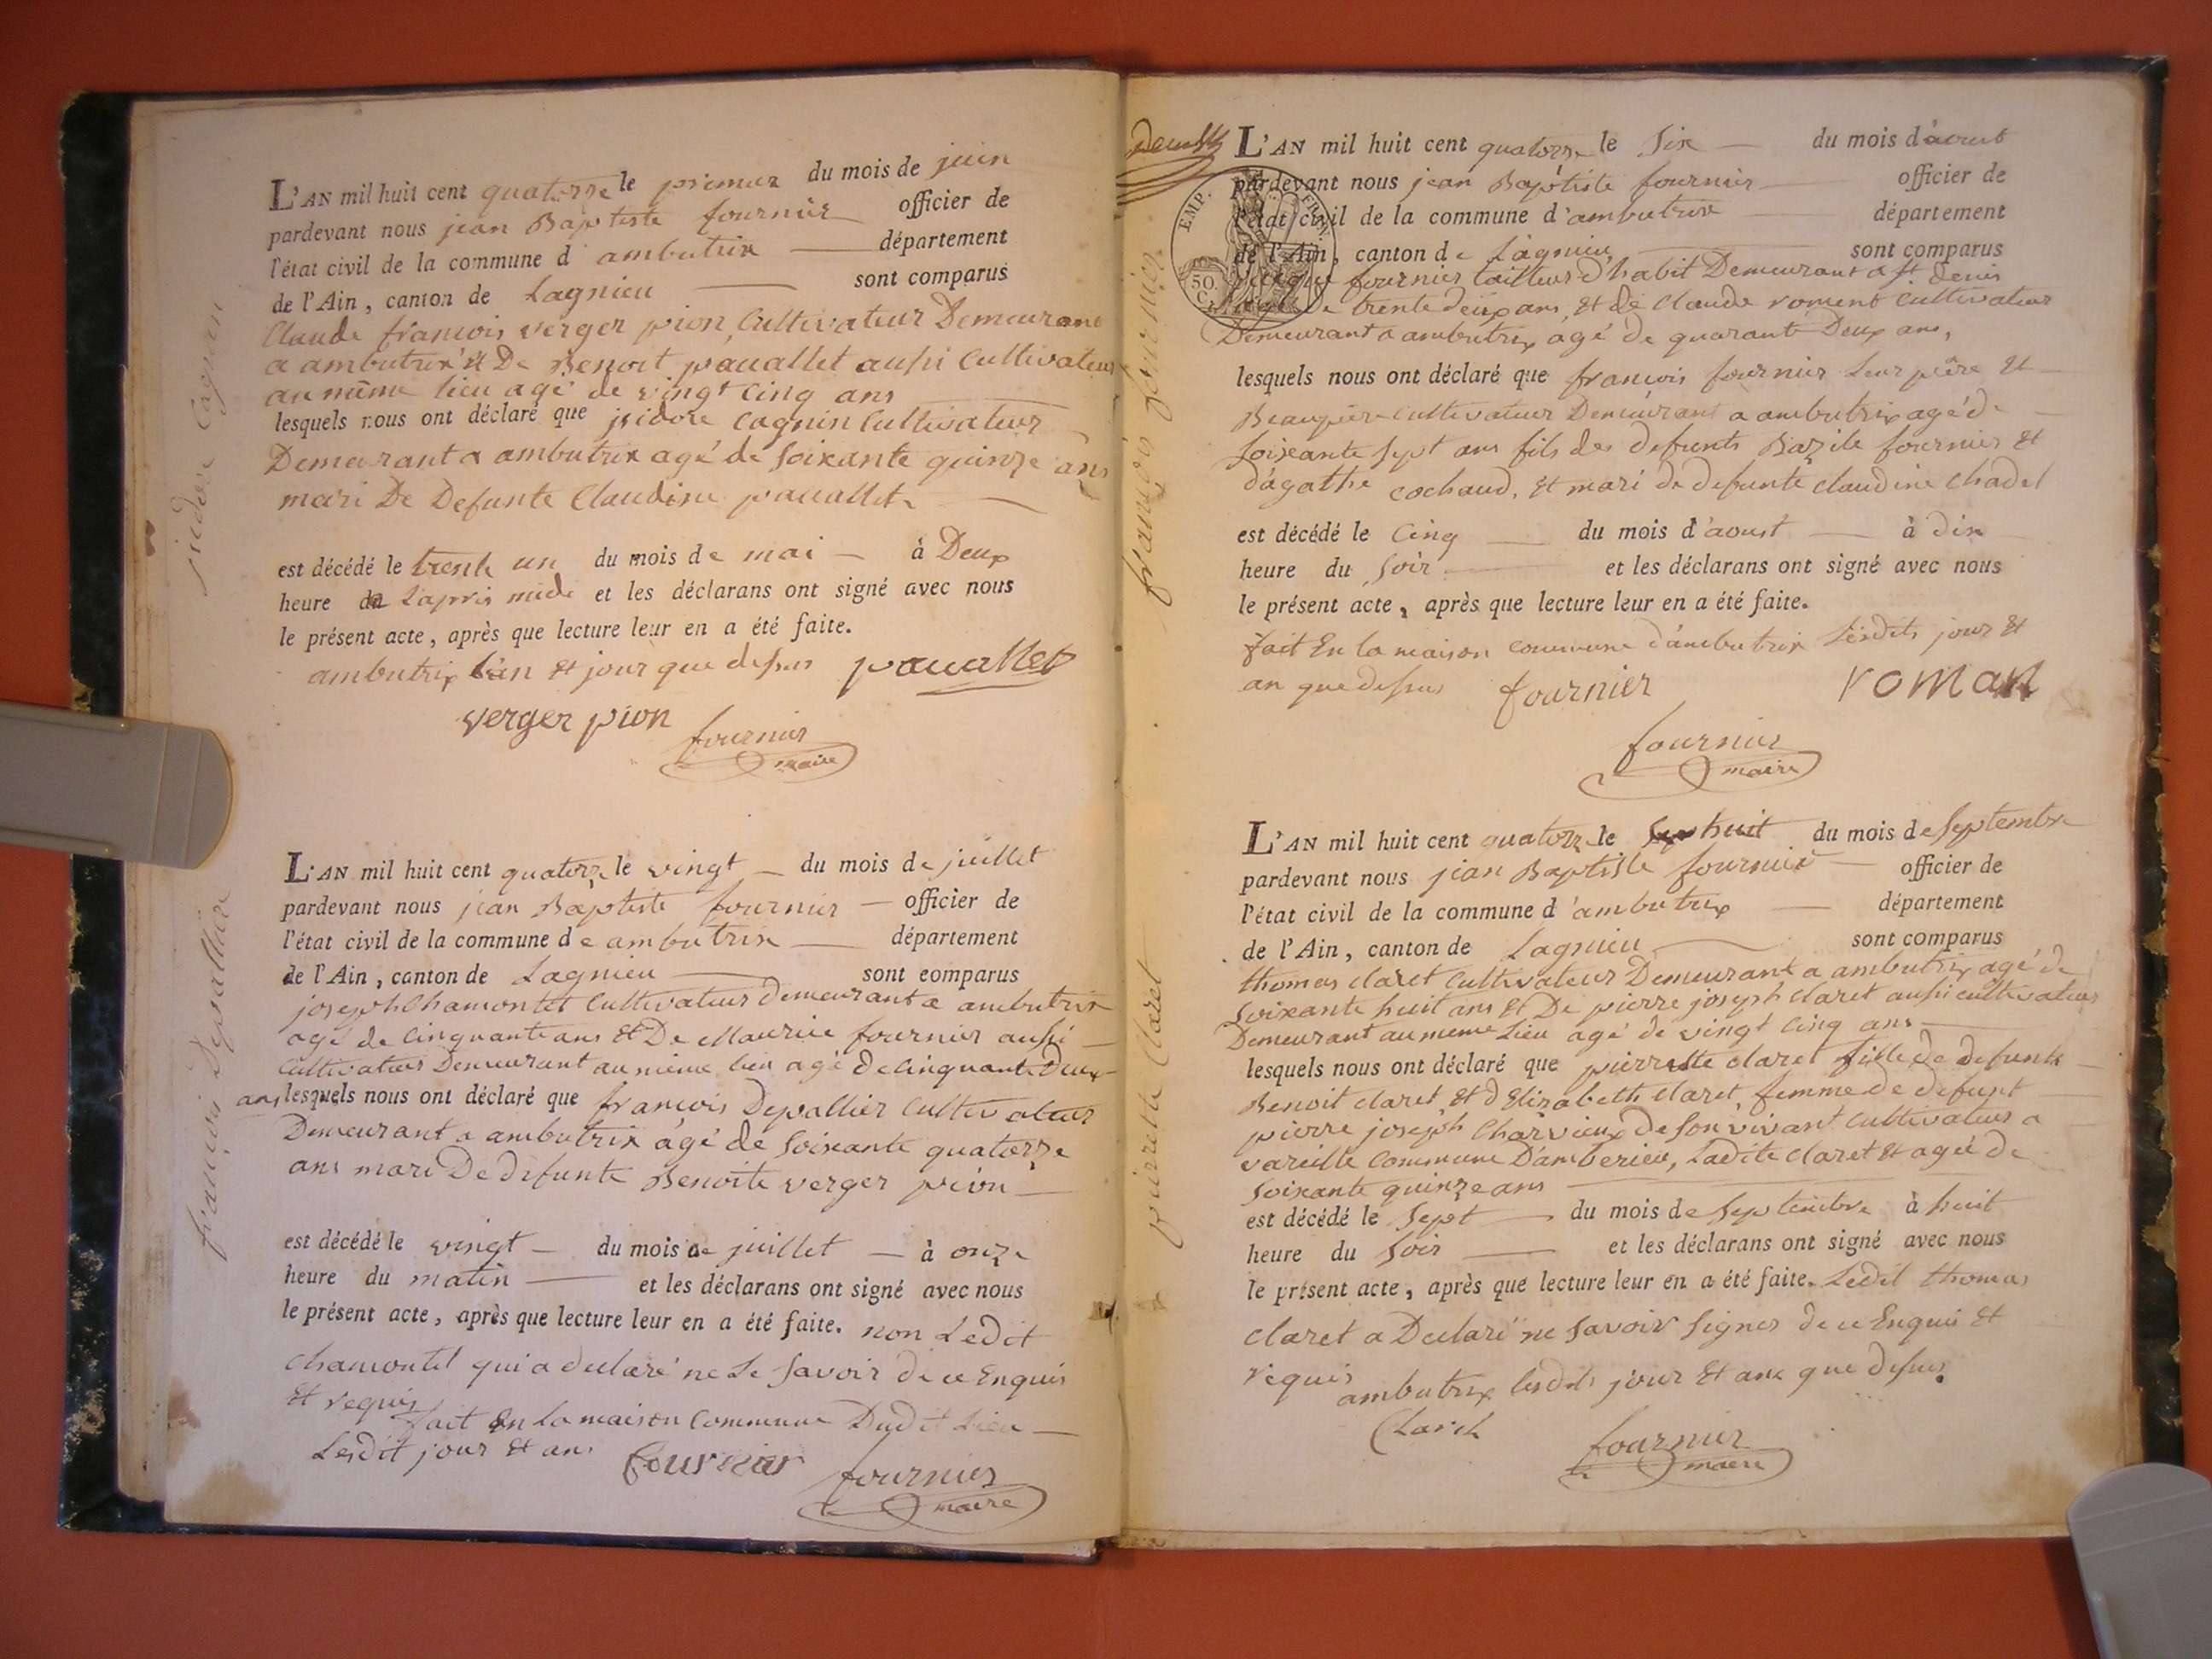 isidore Cagnin
L'AN mil huit cent quatorze le premier du mois de juin
pardevant nous jean Baptiste fournier officier de
l'état civil de la commune d'ambutrix département
de l'Ain, canton de Lagnieu sont comparus
Claude francois verger pion, Cultivateur Demeurant
a ambutrix et De Benoit pauallet aussi Cultivateur
au même lieu agé de vingt Cinq ans
lesquels nous ont déclaré que isidore Cagnin Cultivateur
Demeurant a ambutrix agé de soixante quinze ans
mari De Defunte Claudine pauallet
est décédé le trente un du mois de mai à Deux
heure de L'apres midi et les déclarans ont signé avec nous
le présent acte, après que lecture leur en a été faite.
ambutrix L'an et jour que dessus pauallet
verger pion fournier
maire
francois Depallier
L'AN mil huit cent quatorze le vingt du mois de juillet
pardevant nous jean Baptiste fournier officier de
l'état civil de la commune de ambutrix département
de l'Ain, canton de Lagnieu sont comparus
joseph Chamontet Cultivateur demeurant a ambutrix
agé de Cinquante ans et De Maurice fournier aussi
Cultivateur Demeurant au même lieu agé de Cinquante deux
ans lesquels nous ont déclaré que francois Depallier Cultivateur
Demeurant a ambutrix agé de soixante quatorze
ans mari De defunte Benoite verger pion
est décédé le vingt du mois de juillet à onze
heure du matin et les déclarans ont signé avec nous
le présent acte, après que lecture leur en a été faite. non Ledit
Chamontet qui a declaré ne Le savoir de ce Enquis
et requis
fait En La maison Commune Dudit Lieu
Lesdit jour et ans fournier fournier
maire
francois fournier
EMP. FRAN.
50. C.
L'AN mil huit cent quatorze le Six du mois d'aoust
pardevant nous jean Baptiste fournier officier de
l'état civil de la commune d'ambutrix département
de l'Ain, canton de Lagnieu sont comparus
fournier tailleur d'habit Demeurant a st. denis
agé de trente deux ans, et de Claude roment Cultivateur
Demeurant a ambutrix agé de quarant Deux ans,
lesquels nous ont déclaré que francois fournier Leur père et
Beaupère Cultivateur Demeurant a ambutrix agé de
soixante sept ans fils des defunts Bazile fournier et
d'agathe cochaud, et mari de defunte claudine Chadel
est décédé le Cinq du mois d'aoust à dix
heure du soir et les déclarans ont signé avec nous
le présent acte, après que lecture leur en a été faite.
fait En la maison commune d'ambutrix Lesdits jour et
an que dessus fournier roman
fournier
maire
pierrette Claret
L'AN mil huit cent quatorze le huit du mois de septembre
pardevant nous jean Baptiste fournier officier de
l'état civil de la commune d'ambutrix département
de l'Ain, canton de Lagnieu sont comparus
thomas claret Cultivateur Demeurant a ambutrix agé de
soixante huit ans et De pierre joseph claret aussi cultivateur
Demeurant au meme Lieu agé de vingt Cinq ans
lesquels nous ont déclaré que pierrette claret fille de defunts
Benoit claret, et d'Elizabeth claret, femme de defunt
pierre joseph Charvieux de son vivant Cultivateur a
vareille Commune D'amberieu, Ladite claret et ageé de
soixante quinze ans
est décédé le sept du mois de septembre à huit
heure du soir et les déclarans ont signé avec nous
le présent acte, après que lecture leur en a été faite. Ledit thomas
claret a Declaré ne savoir signer de ce Enquis et
requis
ambutrix lesdits jour et ans que dessus.
Claret fournier
maire